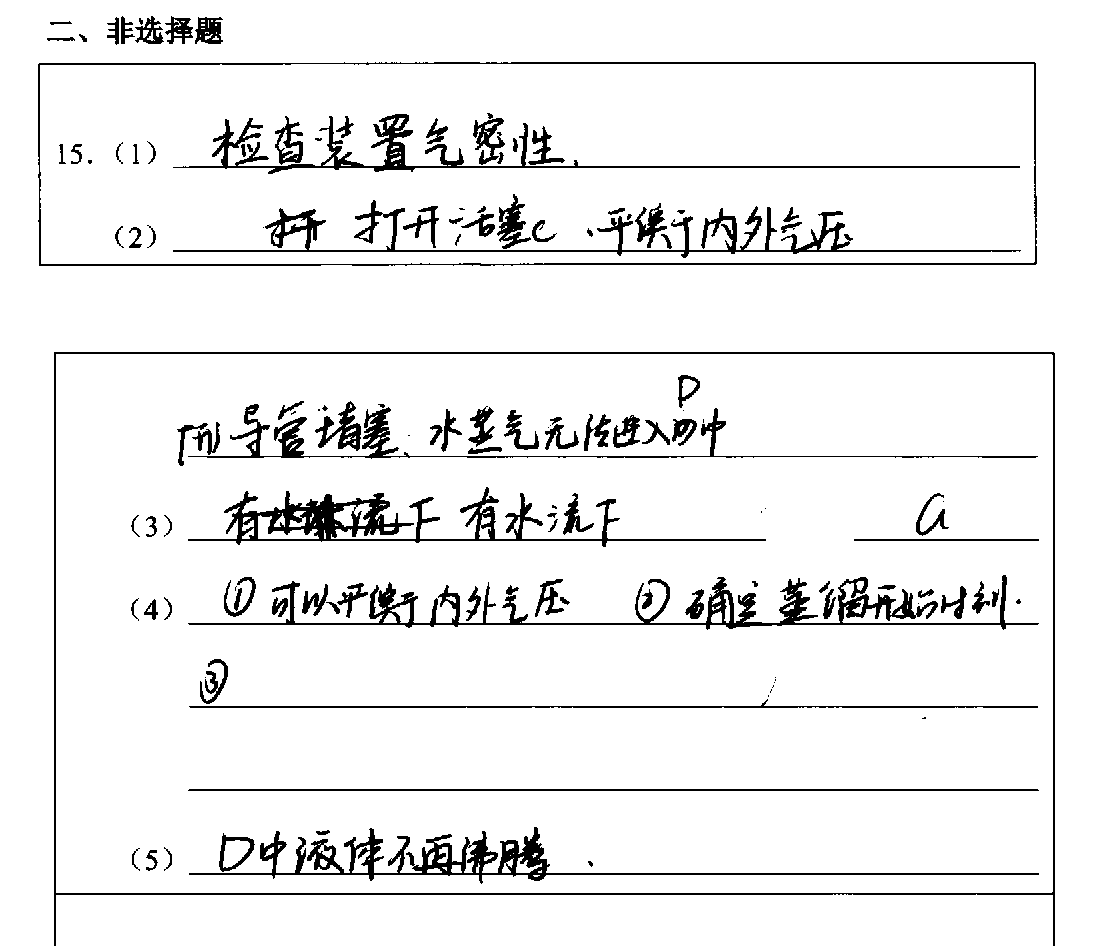 二、非选择题
15.（1）检查装置气密性.
（2）打开活塞C、平衡于内外气压
导管堵塞、水蒸气无法进入D中
（3）有水流下 a
（4）①可以平衡于内外气压 ②确定蒸馏开始时刻.
③
（5）D中液体不再沸腾.